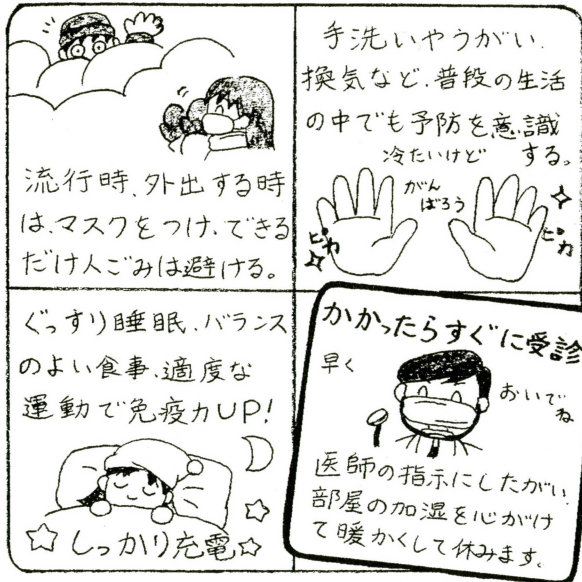 流行時、外出する時
は、マスクをつけ、できる
だけ人ごみは避ける。
手洗いやうがい、
換気など、普段の生活
の中でも予防を意識
する。
冷たいけど
がん
ばろう
ピカ
ピカ
ぐっすり睡眠、バランス
のよい食事、適度な
運動で免疫力UP!
しっかり充電
かかったらすぐに受診
早く
おいで
ね
医師の指示にしたがい、
部屋の加湿を心がけ
て暖かくして休みます。